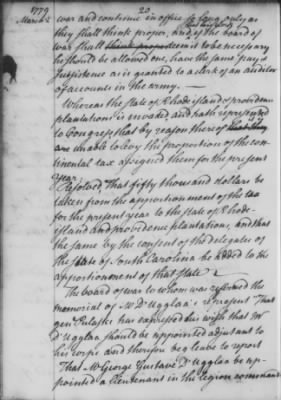 1779
March 2
20.
war and continue in office so long only as
they shall think proper, and if the board of
war shall think proper deem it to be necessary
he should be allowed one, have the same pay &
subsistence as is granted to a clerk of an auditor
of accounts in the army. —
Whereas the state of Rhode island & providence
plantations is invaded and hath represented
to Congress that by reason thereof that they
are unable to levy the proportion of the con-
tinental tax assigned them for the present
year;
Resolved That fifty thousand dollars be
taken from the apportionment of the tax
for the present year to the state of Rhode-
island and providence plantation, and that
the same by the consent of the delegates of
the state of South Carolina be added to the
apportionment of that state.
The board of war to whom was referred the
memorial of Mr D'Ugglaa: represent That
gen Pulaski has expressed his wish that Mr
D'Ugglaa should be appointed adjutant to
his corps and thereupon beg leave to report
That Mr George Gustave D'Ugglaa be ap-
pointed a lieutenant in the legion command